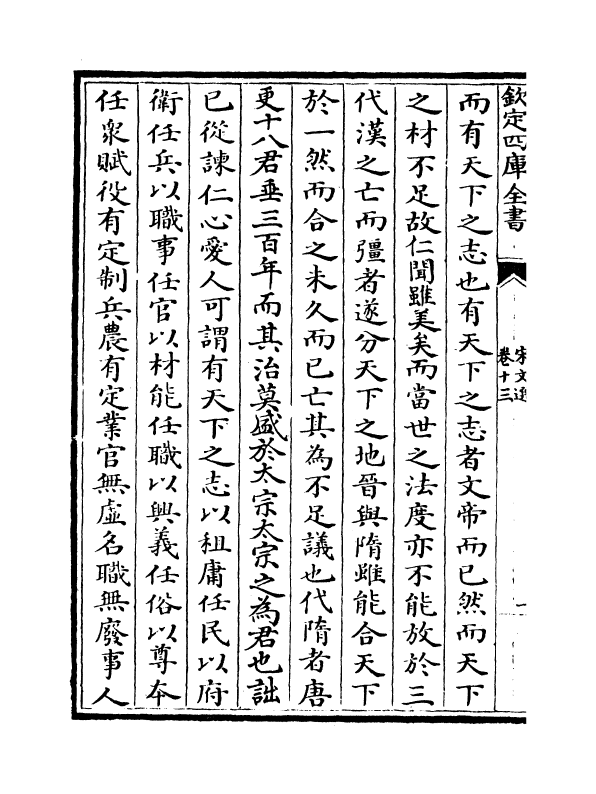 欽定四庫全書
宋文選
卷十三
而有天下之志也有天下之志者文帝而已然而天下
之材不足故仁聞雖美矣而當世之法度亦不能放於三
代漢之亡而彊者遂分天下之地晉與隋雖能合天下
於一然而合之未久而已亡其為不足議也代隋者唐
更十八君垂三百年而其治莫盛於太宗太宗之為君也詘
已從諫仁心愛人可謂有天下之志以租庸任民以府
衛任兵以職事任官以材能任職以興義任俗以尊本
任衆賦役有定制兵農有定業官無虛名職無廢事人